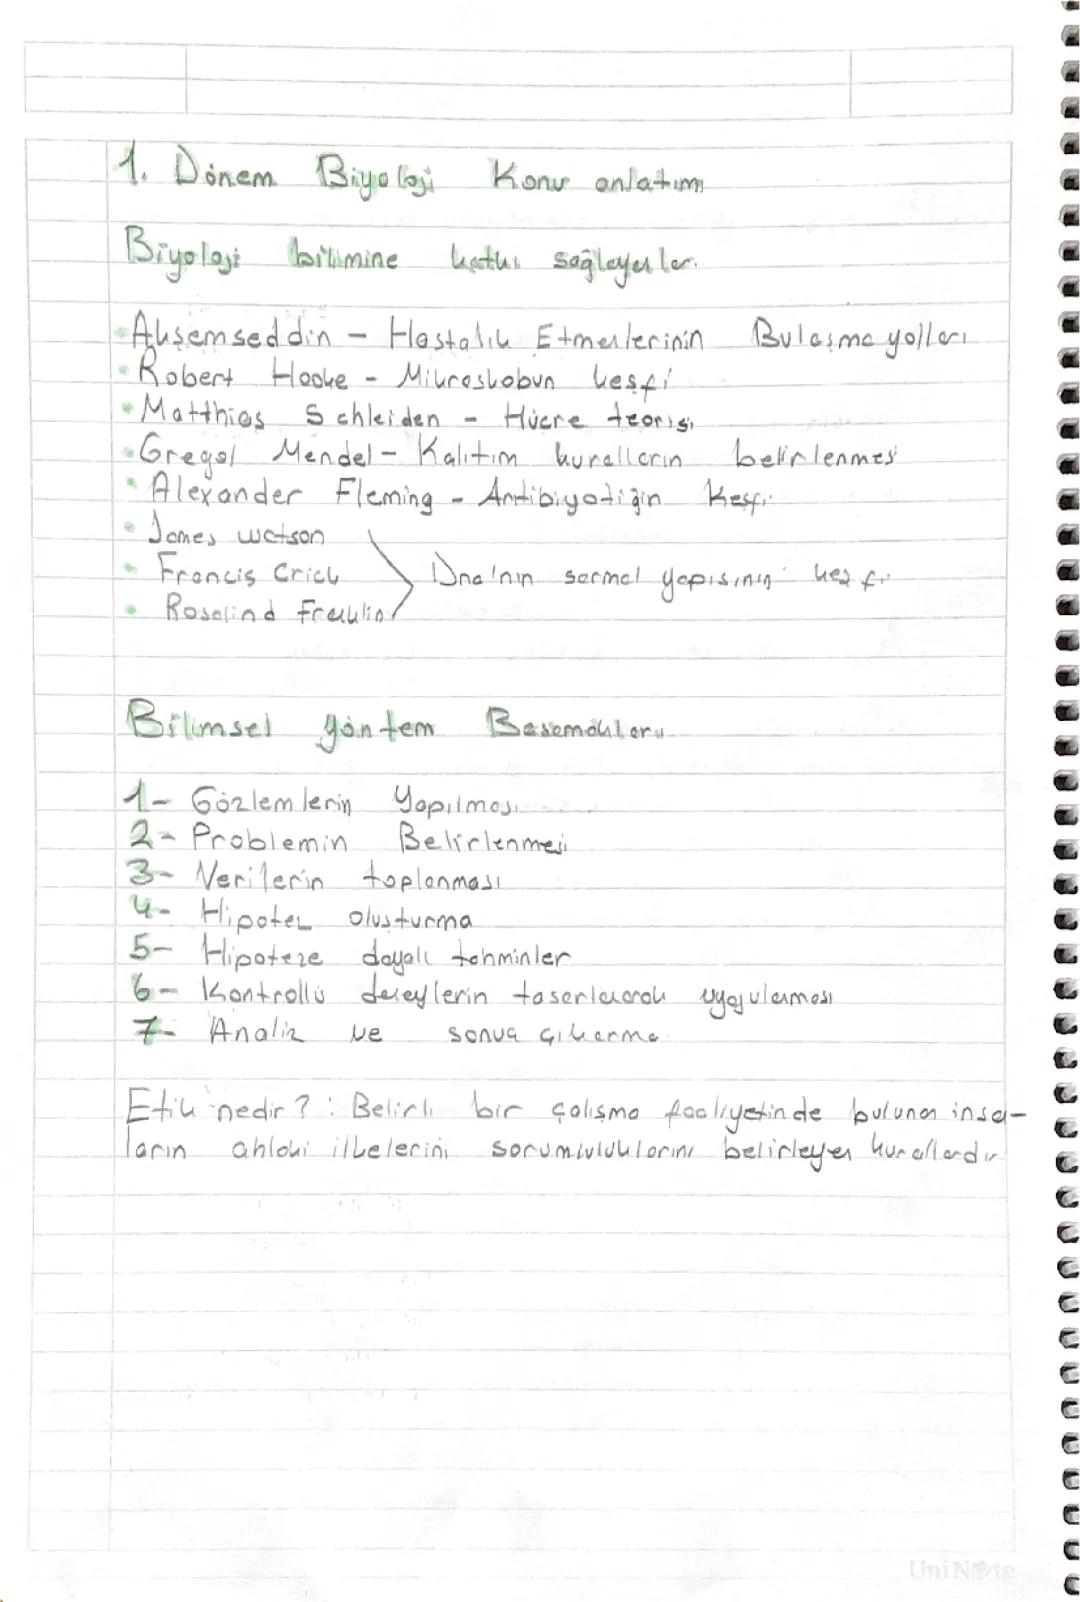 1. Dönem Biyoloji Konu anlatımı
Biyoloji bilimine katkı sağlayanlar.
• Akşemseddin - Hastalık Etmenlerinin Bulaşma yolları
• Robert Hooke - Mikroskobun keşfi
• Matthias Schleiden - Hücre teorisi
• Gregol Mendel - Kalıtım kuralların belirlenmesi
• Alexander Fleming - Antibiyotiğin Keşfi
• James watson
• Francis Crick
Dna'nın sarmal yapısının keşfi
• Rosalind Franklin
Bilimsel yöntem Basamakları
1- Gözlemlerin Yapılması
2- Problemin Belirlenmesi
3- Verilerin toplanması
4- Hipotez oluşturma
5- Hipoteze dayalı tahminler
6- Kontrollü deneylerin tasarlanarak uygulanması
7- Analiz ve sonuç çıkarma
Etik nedir? : Belirli bir çalışma faaliyetinde bulunan insa-
ların ahlaki ilkelerini sorumluluklarını belirleyen kurallardır
UniNote